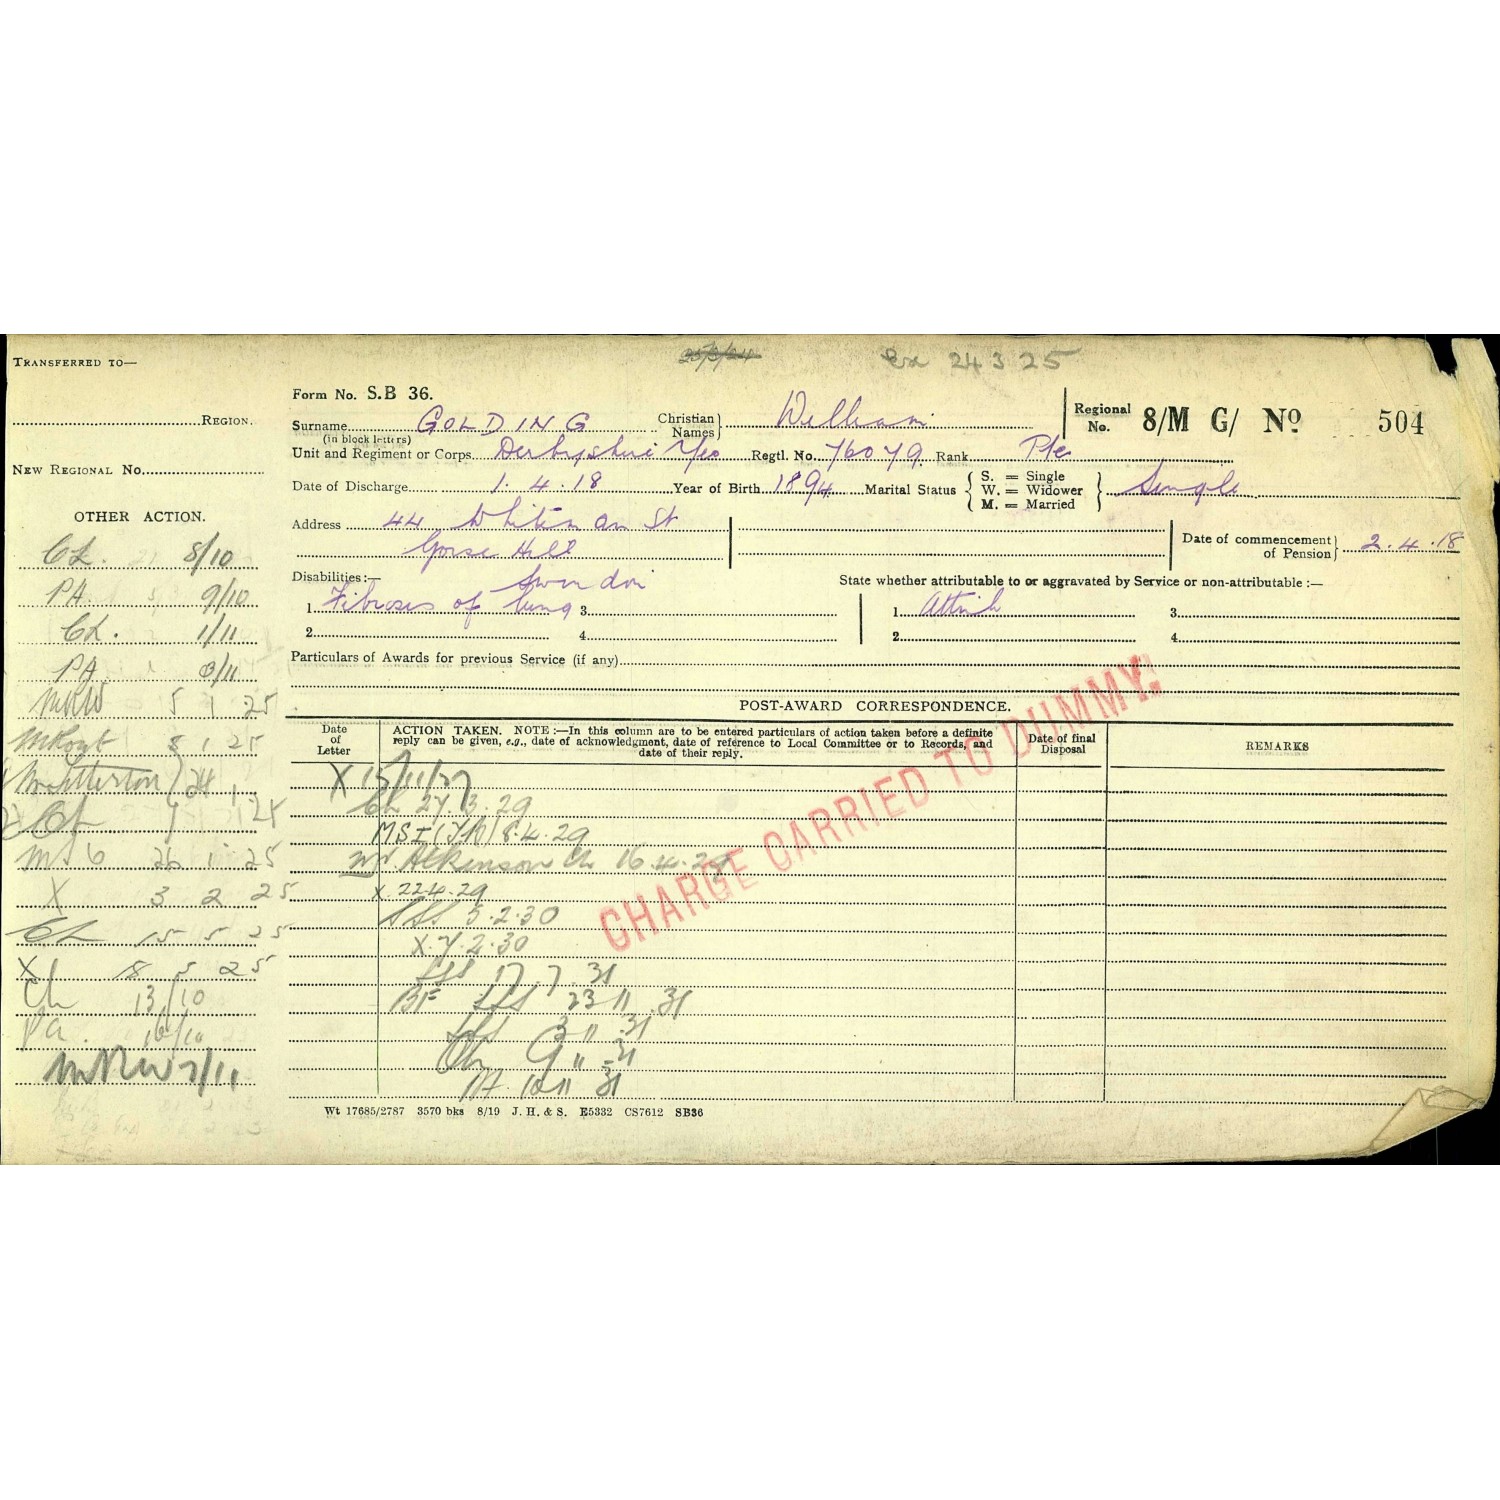 TRANSFERRED TO—
REGION.
NEW REGIONAL No.
OTHER ACTION.
CL. 8/10
PA 9/10
CL. 1/11
PA 3/11
MRW 5 1 25
5 1 25
24 1 25
26 1 25
X 3 2 25
CL 15 5 25
X 18 5 25
Ch 13/10
Pa. 16/10
MRW 7/11
25/3/24
24 3 25
Form No. S.B 36.
Surname GOLDING Christian Names} William
(in block letters)
Regional No. 8/M G/ Nº 504
Unit and Regiment or Corps Derbyshire Yeo Regtl. No. 76079 Rank Pte
Date of Discharge 1.4.18 Year of Birth 1894 Marital Status { S. = Single W. = Widower M. = Married } Single
Address 44 Whiteman St
Gorse Hill
Swindon
Date of commencement of Pension} 2.4.18
Disabilities:—
State whether attributable to or aggravated by Service or non-attributable :—
1 Fibrosis of lung 3
1 Attrib 3
2 4
2 4
Particulars of Awards for previous Service (if any)
POST-AWARD CORRESPONDENCE.
Date of Letter
ACTION TAKEN. NOTE :—In this column are to be entered particulars of action taken before a definite
reply can be given, e.g., date of acknowledgment, date of reference to Local Committee or to Records, and
date of their reply.
Date of final Disposal
REMARKS
X 15/11/27
Ch 27.3.29
MSI 8.4.29
Mr Atkinson Ch 16.4.29
X 22.4.29
SSS 5.2.30
X 7.2.30
SSS 17 7 31
BF SSS 23 11 31
SSS 3 11 31
Ch 9 11 31
10 11 31
CHARGE CARRIED TO DUMMY.
Wt 17685/2787 3570 bks 8/19 J. H. & S. E5332 CS7612 SB36